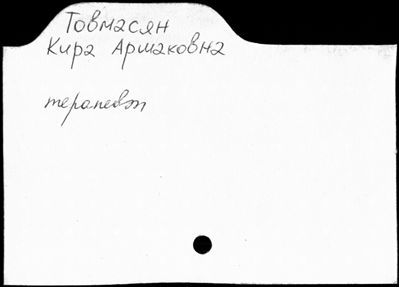 Товмасян
Кира Аршаковна
терапевт